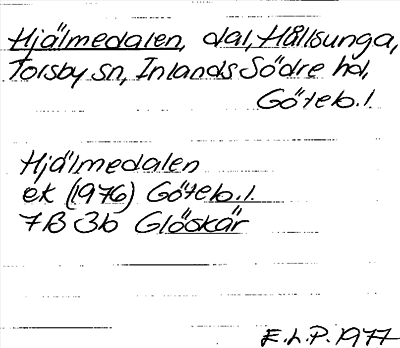 Hjälmedalen, dal, Hållsunga,
Torsby sn, Inlands Södre hd,
Göteb. l.
Hjälmedalen
ek (1976) Göteb. l.
7B 3b Glöskär
E.L.P. 1977